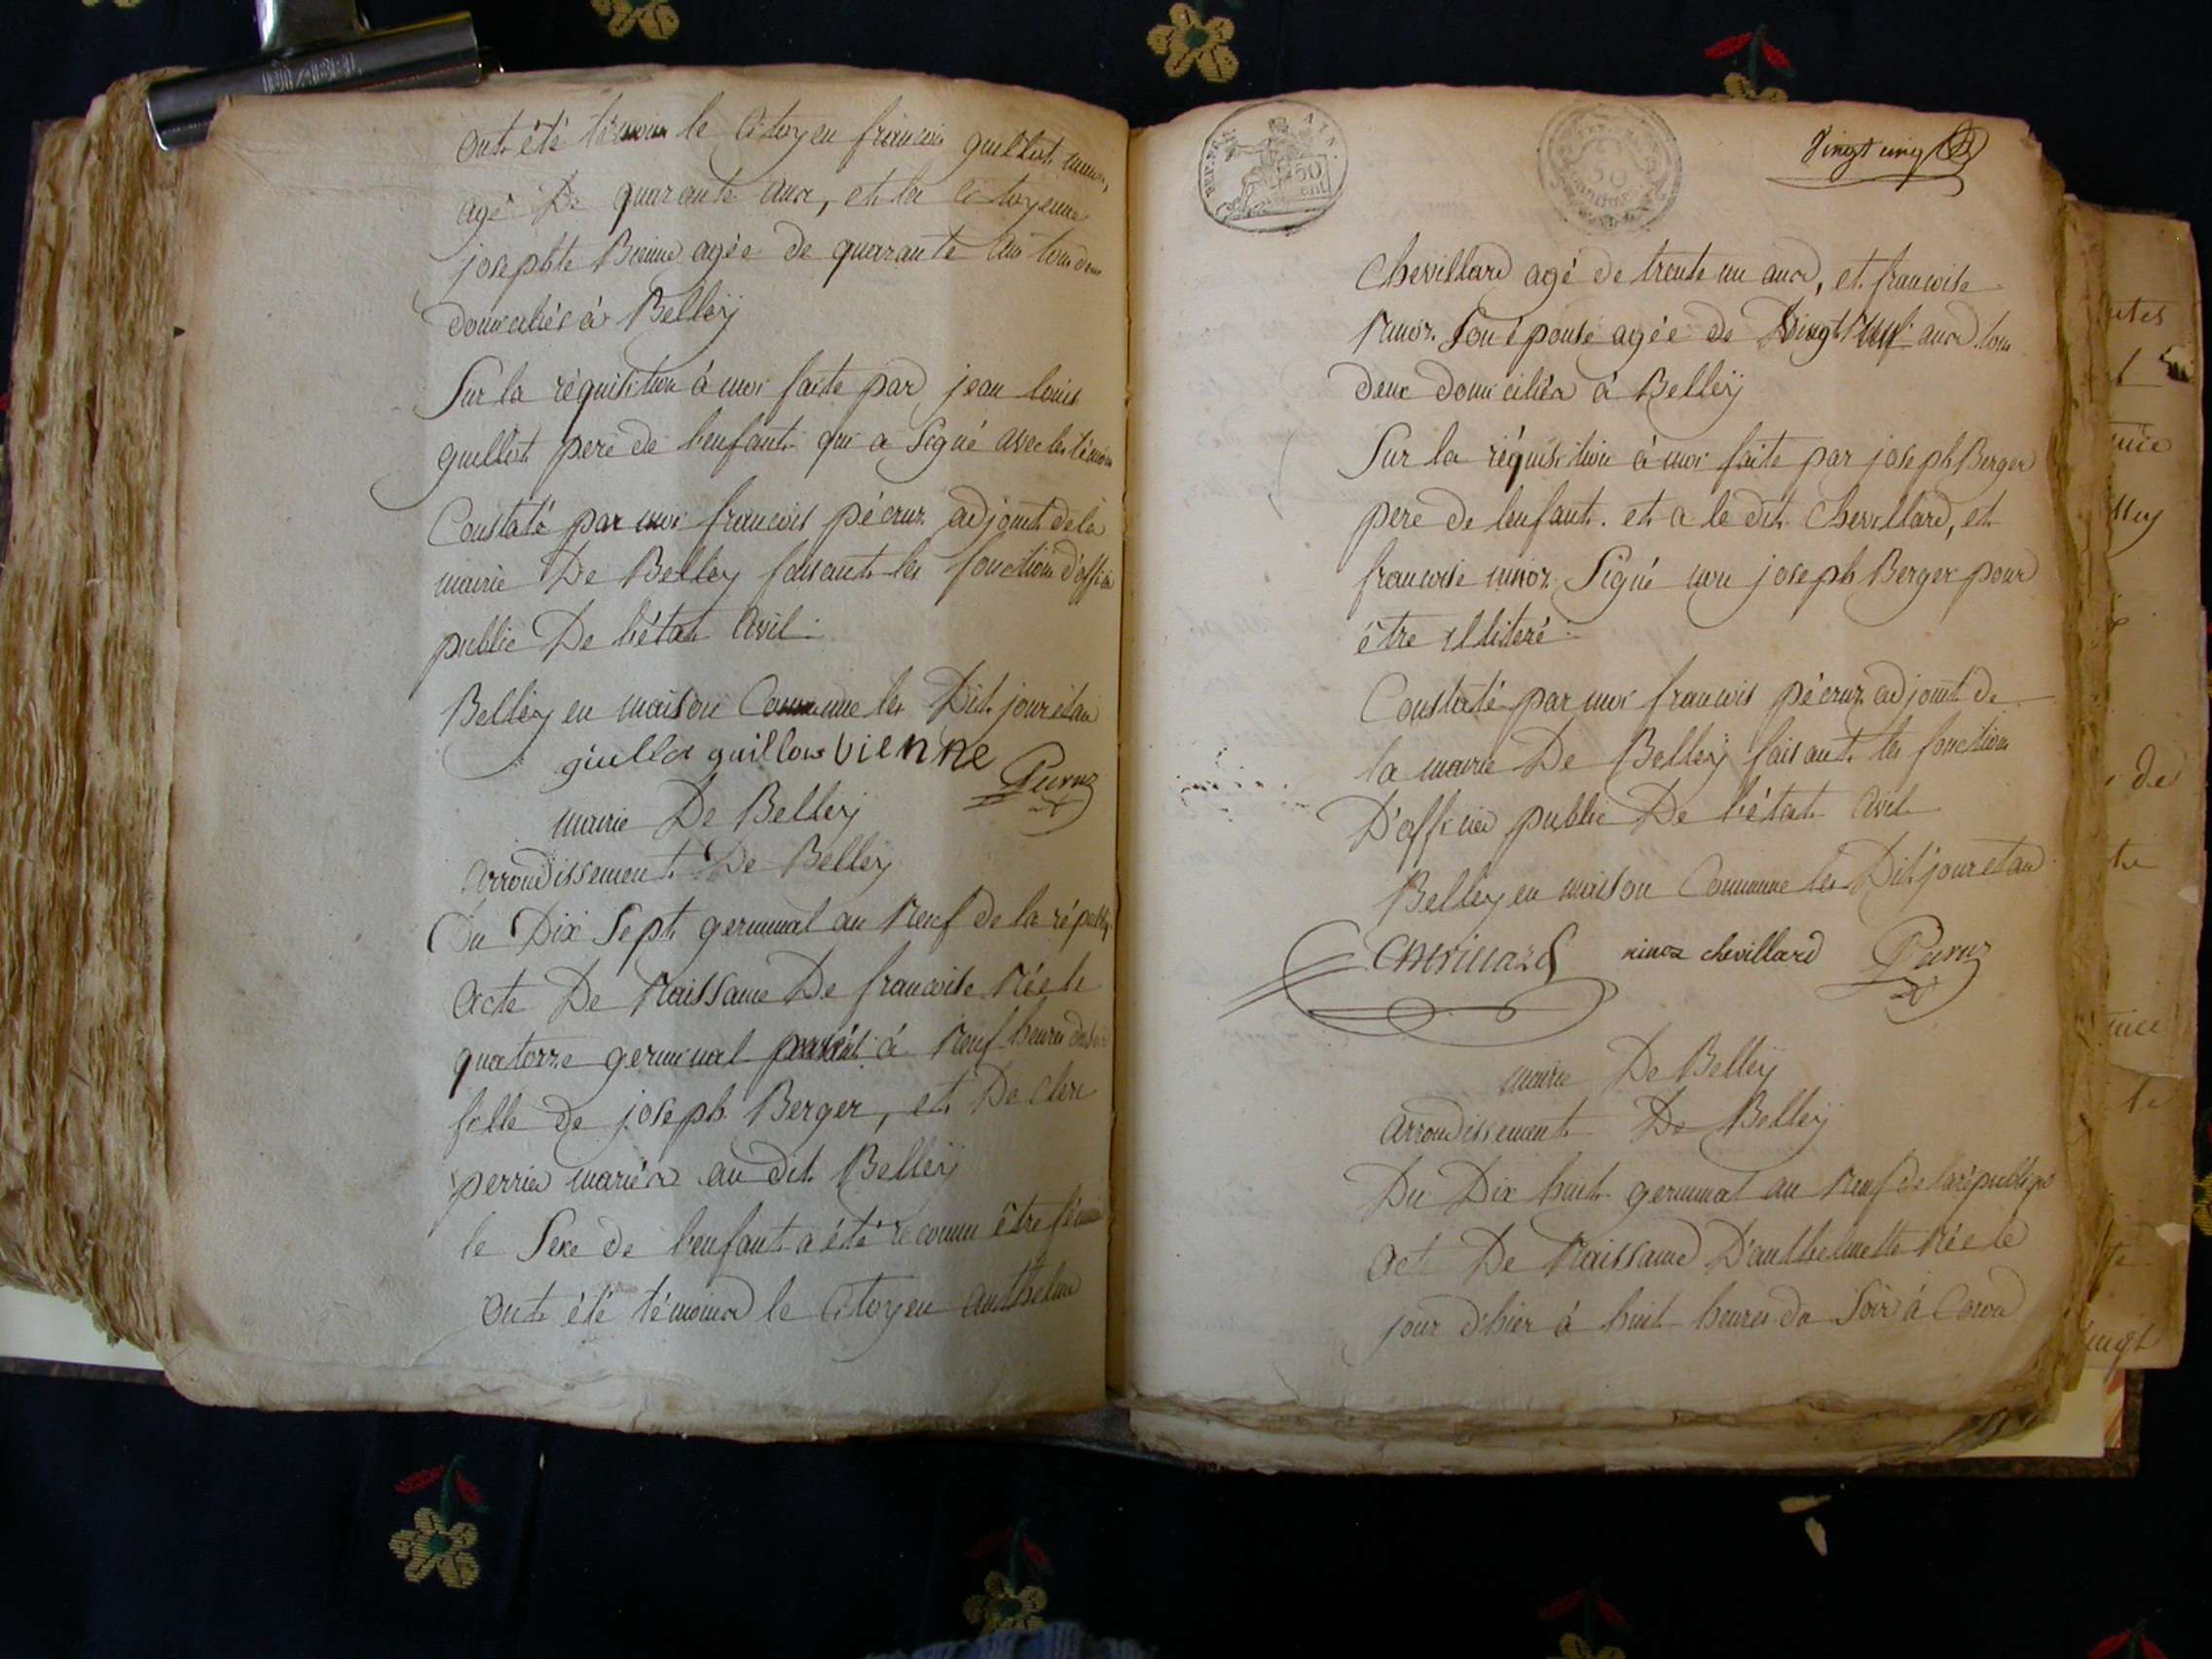 Ont été témoin le Citoyen francois guillot
agé De quarante ans, et la Citoyenne
josephte Vienne agée de quarante ans tous deux
domiciliés à Belleÿ
Sur la réquisition à moi faite par jean louis
guillot pere de l'enfant qui a signé avec les témoins
Constaté par moi francois pécruz adjoint de la
mairie De Belley faisant les fonctions d'officier
public De l'état Civil
Belley en maison Commune les Dits jour et an
guillot guillow vienne
mairie De Belleÿ
arrondissement De Belleÿ
Du Dix Sept germinal an Neuf de la républiq
Acte De Naissance De francoise Née le
quatorze germinal à Neuf heures du soir
fille de joseph Berger, et De Clere
perrier mariés au dit Belleÿ
le Sexe de l'enfant a été reconnu être
Ont été témoins le Citoyen Anthelme
REP. FRA. AIN.
50 cent
Vingt cinq
Chevillard agé de trente un ans, et francoise
Ninoz Son épouse agée de Vingt ans tous
deux domiciliés à Belleÿ
Sur la réquisition à moi faite par joseph Berger
pere de lenfant. et a le dit Chevillard, et
francoise ninoz Signé non joseph Berger pour
être illiteré
Constaté par moi francois pécruz adjoint de
la mairie De Belleÿ faisant les fonctions
D'officier public De l'état Civil
Belley en maison Commune les Dits jour et an
Chevillard ninoz chevillard
mairie De Belleÿ
arrondissement De Belleÿ
Du Dix huit germinal an Neuf de la républiq
Acte De Naissance D'anthelmette Née le
jour d'hier à huit heures du Soir à Coron